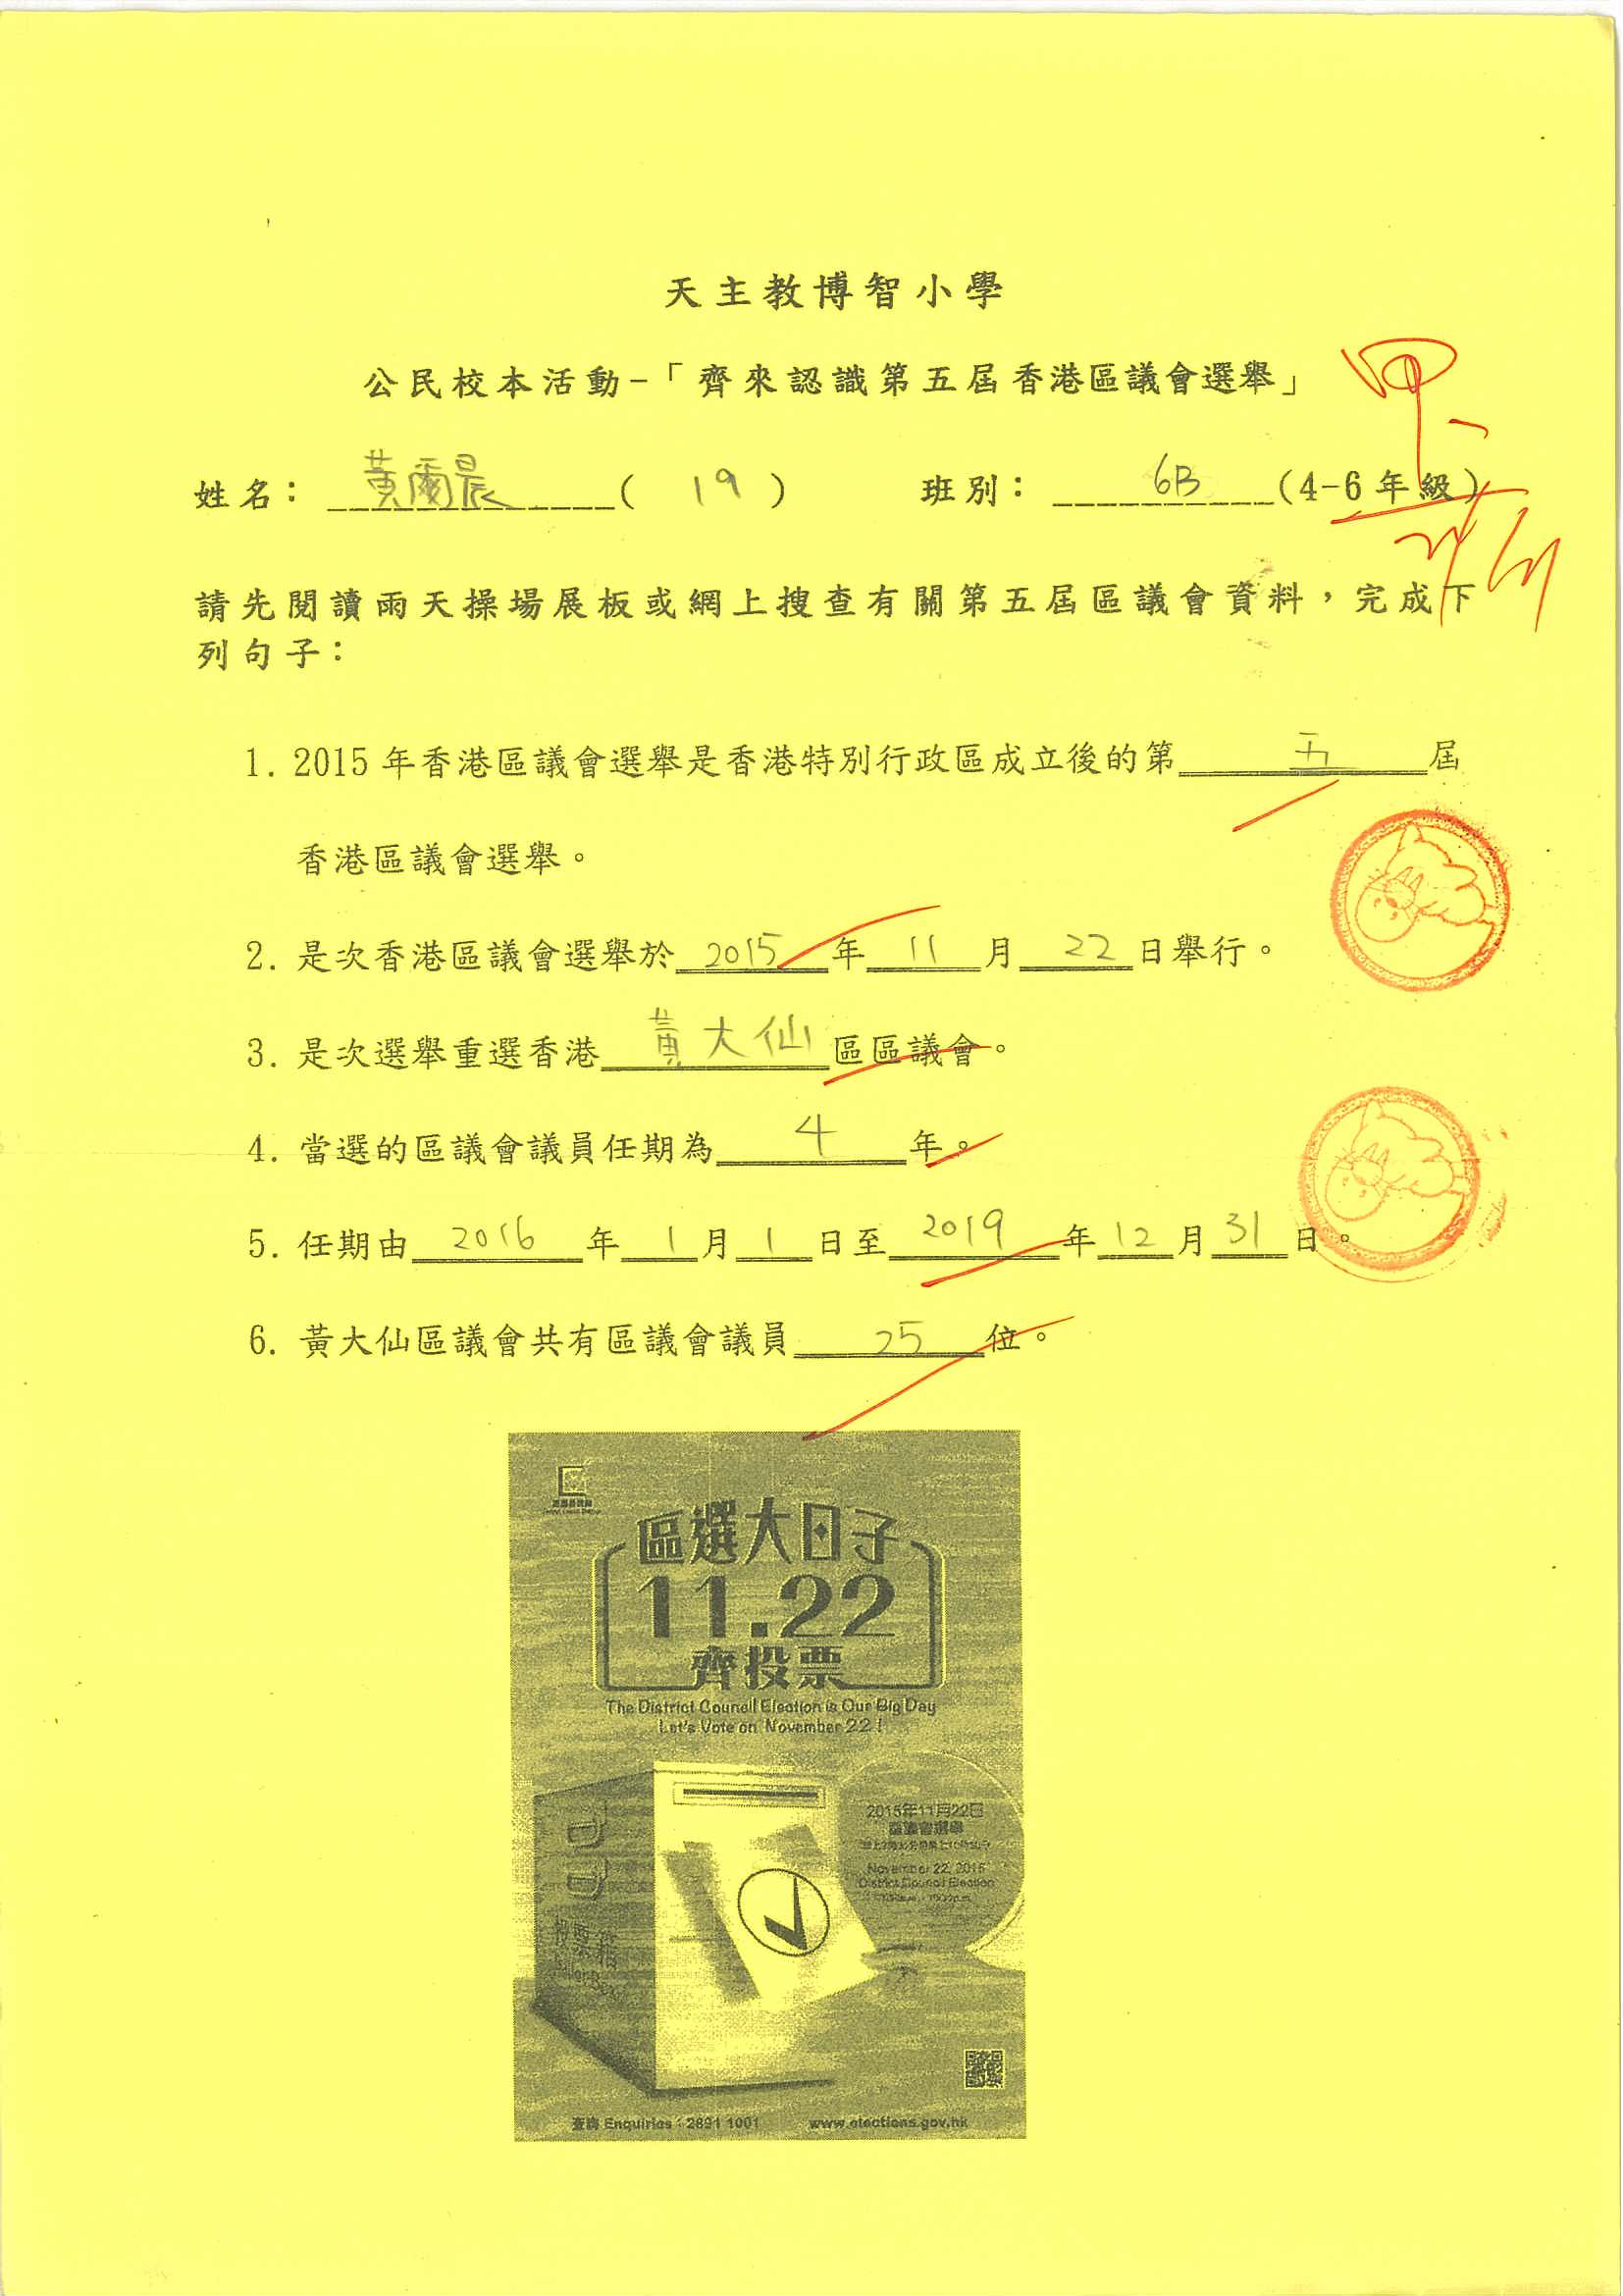 天主教博智小學
公民校本活動-「齊來認識第五屆香港區議會選舉」
甲
姓名： 黃爾晨 ( 19 ) 班別： 6B (4-6年級)
請先閱讀雨天操場展板或網上搜查有關第五屆區議會資料，完成下
列句子：
1. 2015年香港區議會選舉是香港特別行政區成立後的第 五 屆
香港區議會選舉。
2. 是次香港區議會選舉於 2015 年 11 月 22 日舉行。
3. 是次選舉重選香港 黃大仙 區區議會。
4. 當選的區議會議員任期為 4 年。
5. 任期由 2016 年 1 月 1 日至 2019 年 12 月 31 日。
6. 黃大仙區議會共有區議會議員 25 位。
區選大日子
11.22
齊投票
The District Council Election is Our Big Day
Let's Vote on November 22 !
2015年11月22日
區議會選舉
November 22, 2015
District Council Election
投票箱
Ballot Box
查詢 Enquiries : 2891 1001 www.elections.gov.hk